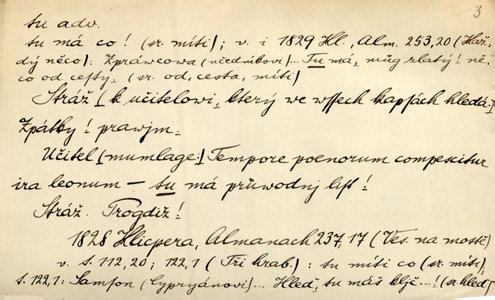 3
tu adv.
tu má co! (sr. míti); v. i 1829 Kl., Alm. 253,20 (Každý něco). Zpráwcowa (učedníkovi)... Tu má, můg zlatý! něco od cesty. (sr. od, cesta, míti)
Stráž [k učitelowi, který we wssech kapsách hledá:]
Zpátky! prawjm.
Učitel [mumlage:] Tempore poenorum compescitur
ira leonum — tu má průwodnj list!
Stráž. Progdiž!
1828 Klicpera, Almanach 237,17 (Ves. na mostě)
v. s. 112,20; 122,1 (Tři hrab.): tu míti co (sr. míti);
s. 122,1: Samson (Cypryánovi)... Hleď, tu máš kljč...! (sr. hled)